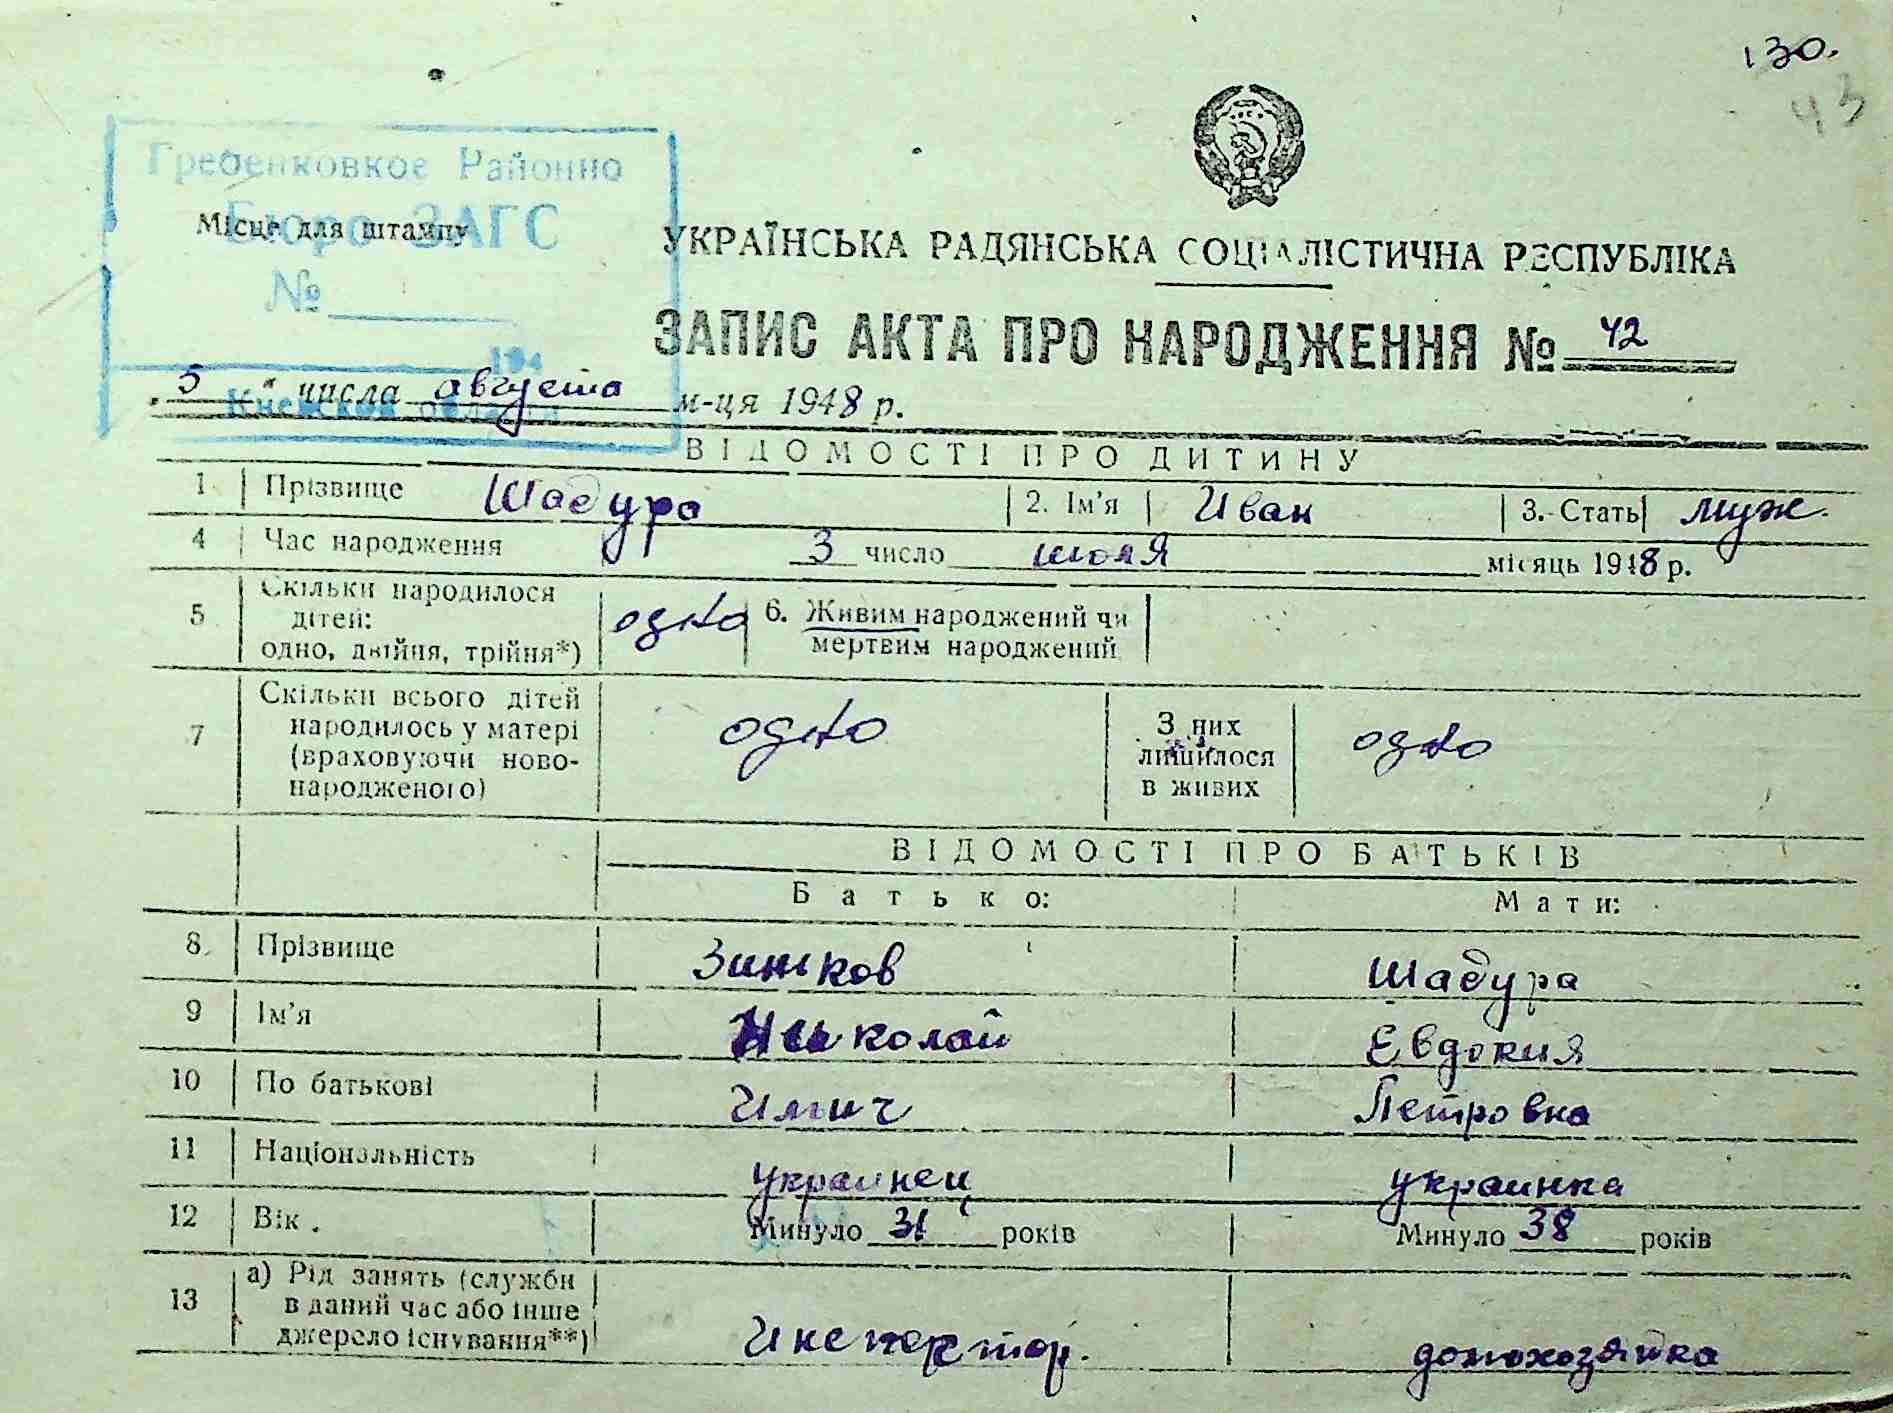 130.
43
Гребенковкое Районно
Бюро ЗАГС
№
194
Киевской области
Місце для штампу
УКРАЇНСЬКА РАДЯНСЬКА СОЦІАЛІСТИЧНА РЕСПУБЛІКА
ЗАПИС АКТА ПРО НАРОДЖЕННЯ № 42
„5“ числа августа м-ця 1948 р.
ВІДОМОСТІ ПРО ДИТИНУ
1 Прізвище Шадура 2. Ім'я Иван 3. Стать муж.
4 Час народження 3 число июля місяць 1948 р.
5 Скільки народилося
дітей:
одно, двійня, трійня*) одно 6. Живим народжений чи
мертвим народжений
7 Скільки всього дітей
народилось у матері
(враховуючи ново-
народженого) одно З них
лишилося
в живих одно
ВІДОМОСТІ ПРО БАТЬКІВ
Батько: Мати:
8. Прізвище Зижков Шадура
9 Ім'я Николай Евдокия
10 По батькові Ильич Петровна
11 Національність украинец украинка
12 Вік . Минуло 31 років Минуло 38 років
13 а) Рід занять (служби
в даний час або інше
джерело існування**) Инспектор. домохозяйка